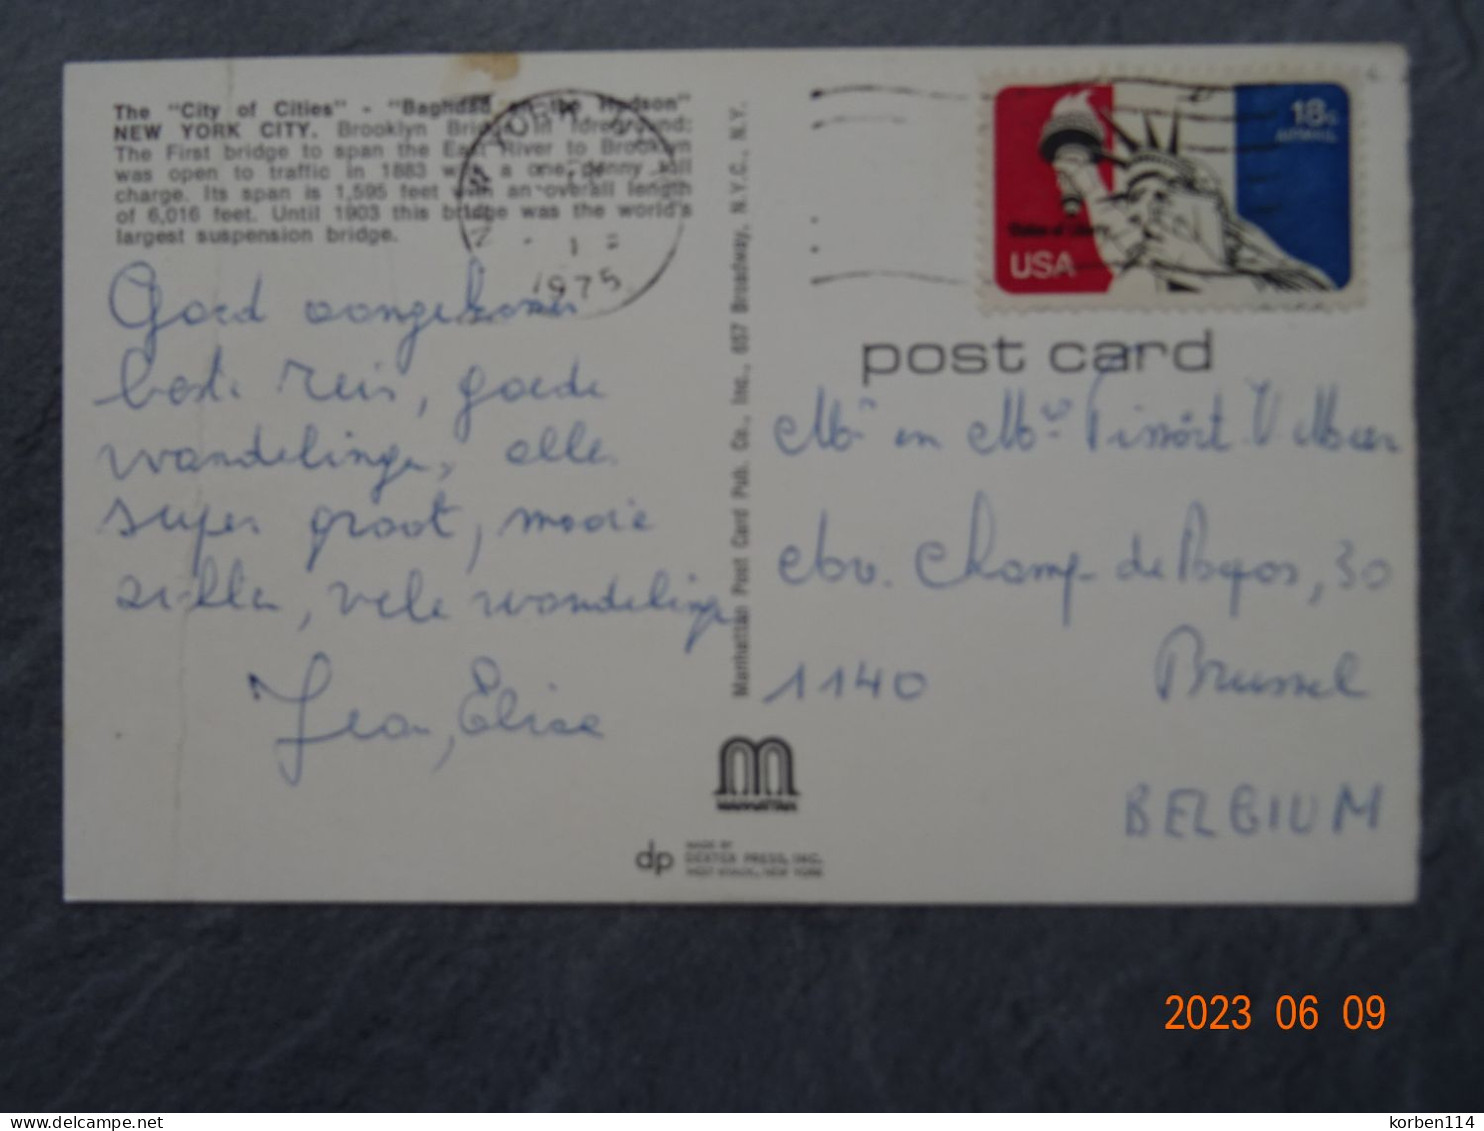 The "City of Cities" - "Baghdad on the Hudson"
NEW YORK CITY. Brooklyn Bridge in foreground:
The First bridge to span the East River to Brooklyn
was open to traffic in 1883 with a one penny toll
charge. Its span is 1,595 feet with an overall length
of 6,016 feet. Until 1903 this bridge was the world's
largest suspension bridge.
NEW YORK, N.Y.
1975
Goed aangekomen
beste reis, goede
wandelinge, alles
super groot, mooie
zillen, vele wandeling
Jean, Elise
Manhattan Post Card Pub. Co., Inc., 657 Broadway, N.Y.C., N.Y.
MANHATTAN
dp
MADE BY
DEXTER PRESS, INC.
WEST NYACK, NEW YORK
18c
AIRMAIL
USA
post card
Mr en Mw Tissört V Meer
Av. Champ de Pagos, 30
1140 Brussel
BELGIUM
2023 06 09
delcampe.net
korben114